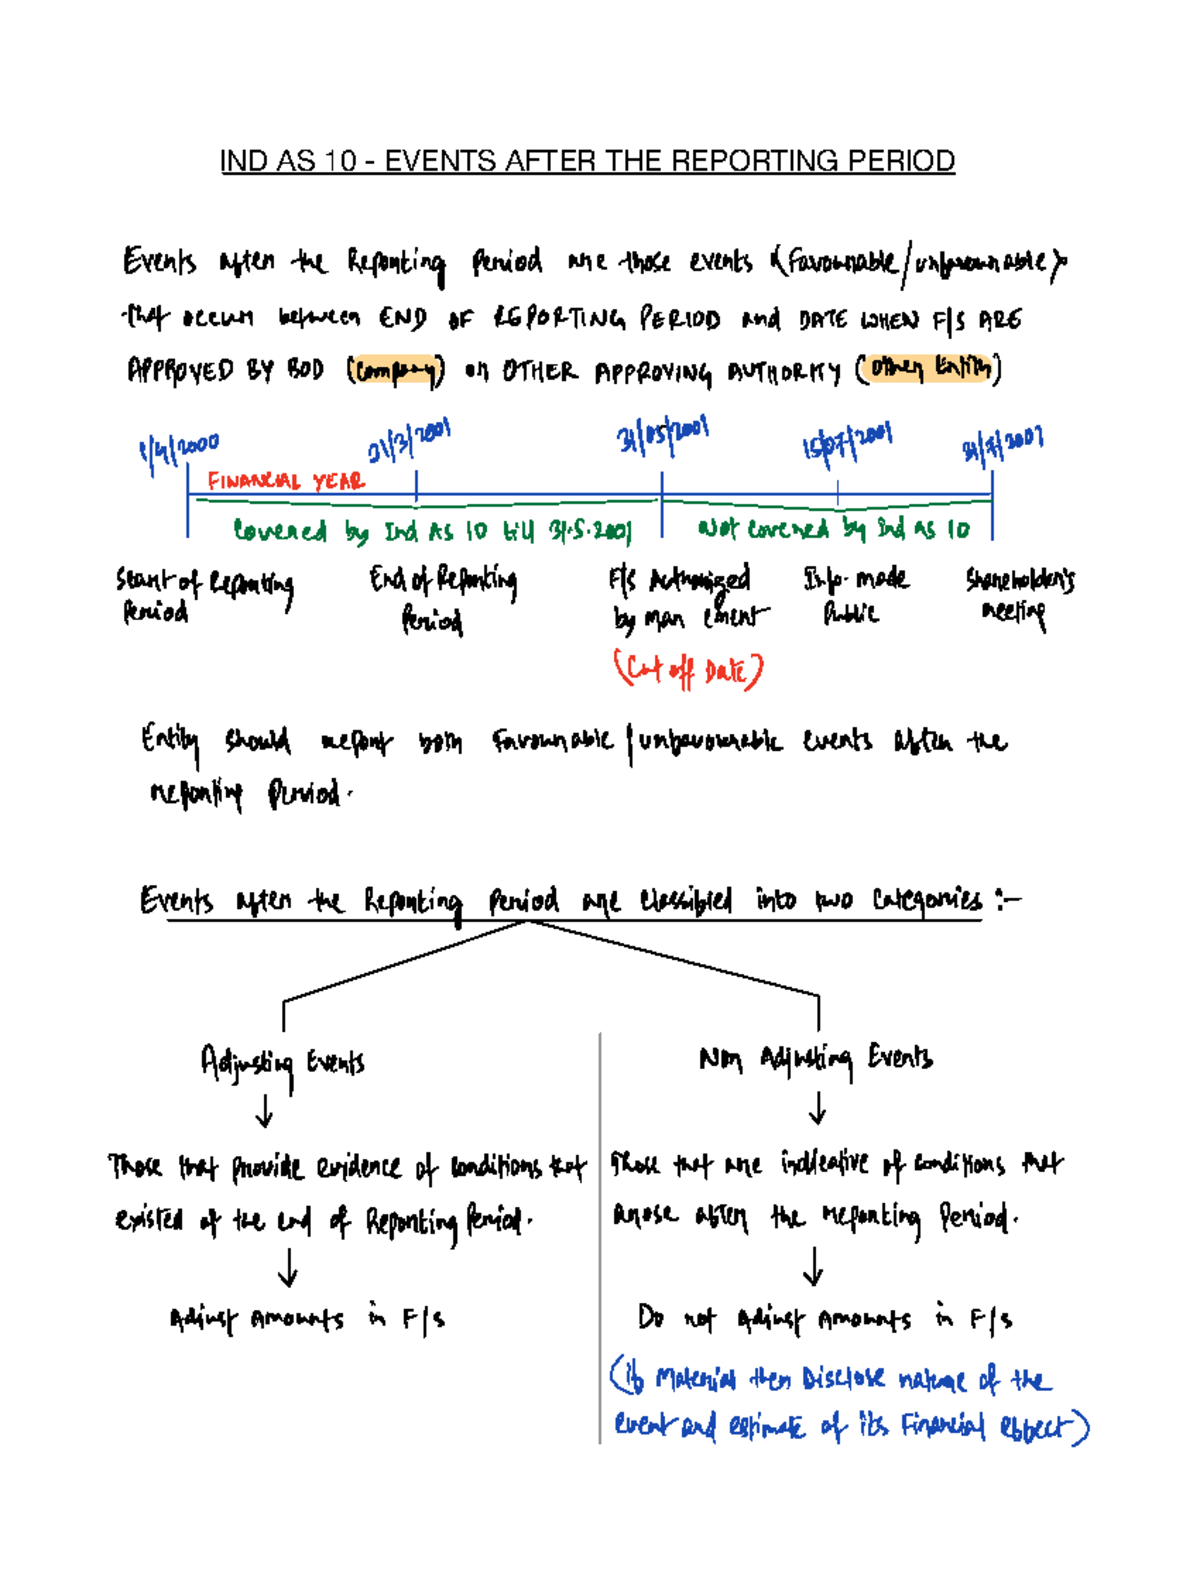 IND AS 10 - EVENTS AFTER THE REPORTING PERIOD
Events after the Reporting Period are those events (favourable/unfavourable)
that occur between END OF REPORTING PERIOD and DATE WHEN F/S ARE
APPROVED BY BOD (Company) or OTHER APPROVING AUTHORITY (Other Entity)
1/4/2000 31/3/2001 31/05/2001 15/07/2001 31/7/2001
FINANCIAL YEAR
Covered by Ind AS 10 till 31.5.2001 Not covered by Ind AS 10
Start of Reporting Period
End of Reporting Period
F/S Authorized by man ement
(Cut off Date)
Info. made Public
Shareholder's meeting
Entity should report both favourable/unfavourable events after the
reporting Period.
Events after the Reporting Period are classified into two categories :-
Adjusting Events
Those that provide evidence of conditions that
existed at the end of Reporting Period.
Adjust Amounts in F/s
Non Adjusting Events
Those that are indicative of conditions that
arose after the reporting Period.
Do not Adjust Amounts in F/s
(if Material then Disclose nature of the
event and estimate of its Financial effect)